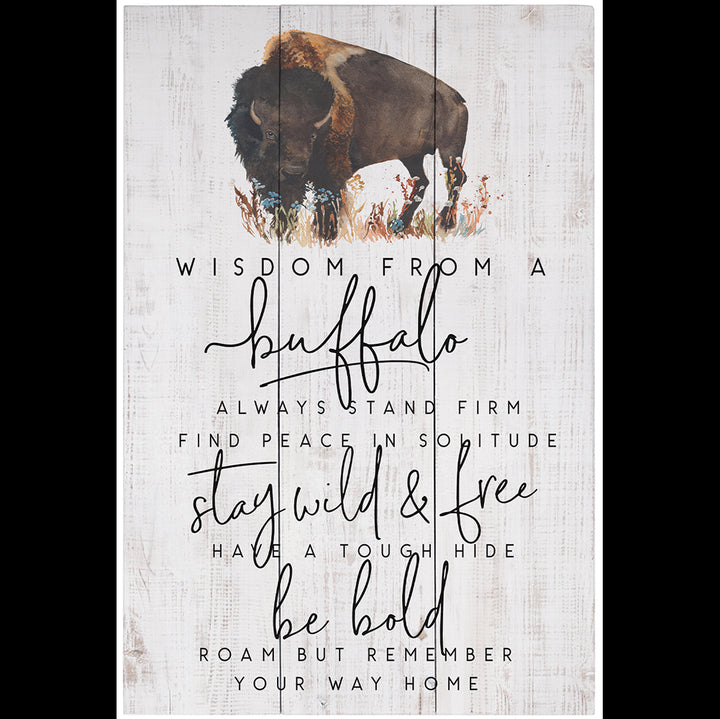 WISDOM FROM A
buffalo
ALWAYS STAND FIRM
FIND PEACE IN SOLITUDE
stay wild & free
HAVE A TOUGH HIDE
be bold
ROAM BUT REMEMBER
YOUR WAY HOME